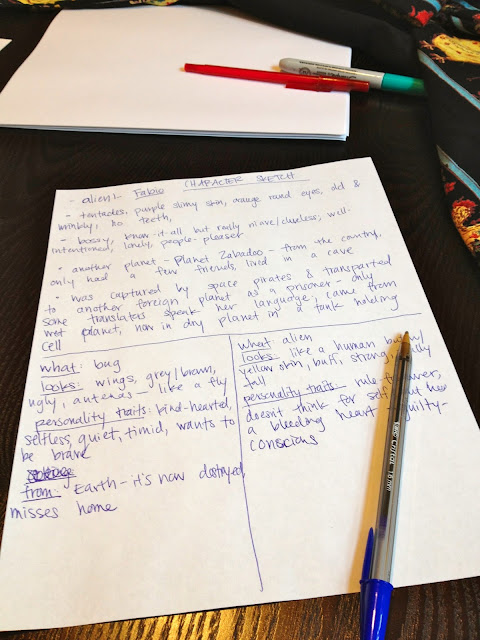 CHARACTER SKETCH
- alien! - Fabio
- tentacles, purple slimy skin, orange round eyes, old &
wrinkly, no teeth,
- bossy, know-it-all but really niave/clueless; well-
intentioned, lonely, people-pleaser
• another planet - Planet Zabadoo - from the country,
only had a few friends, lived in a cave
• was captured by space pirates & transported
to another foreign planet as a prisoner - only
some translators speak her language, came from
wet planet, now in dry planet in a tank holding
cell
what: bug
looks: wings, grey/brown,
ugly, antenas - like a fly
personality traits: kind-hearted,
selfless, quiet, timid, wants to
be brave
from: Earth - it's now destroyed,
misses home
what: alien
looks: like a human
yellow skin, buff, strong,
tall
personality traits: rule-
doesn't think for self, but has
a bleeding heart - guilty-
conscious
BIC Cristal 1.6 mm